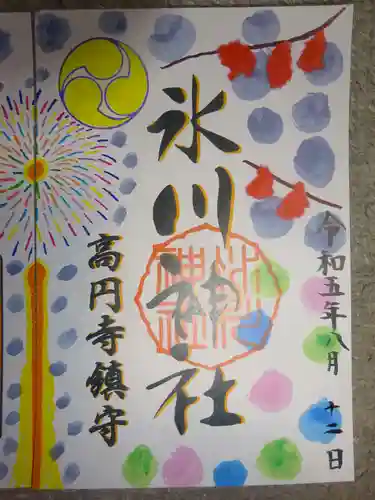 氷川神社
高円寺鎮守
令和五年八月十二日